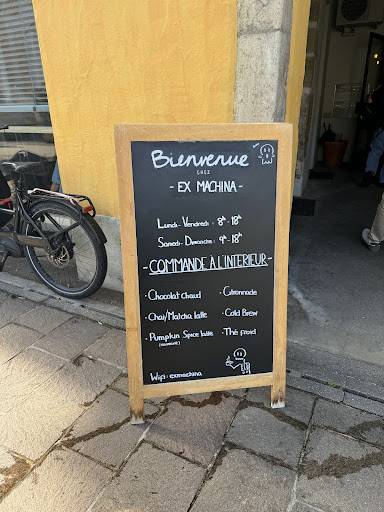 Bienvenue
CHEZ
- EX MACHINA -
Lundi - Vendredi : 8h - 18h
Samedi - Dimanche : 9h - 18h
- COMMANDE A L'INTERIEUR -
· Chocolat chaud
· Chai/Matcha latte
· Pumpkin Spice latte
· Citronnade
· Cold Brew
· Thé froid
Wifi : exmachina